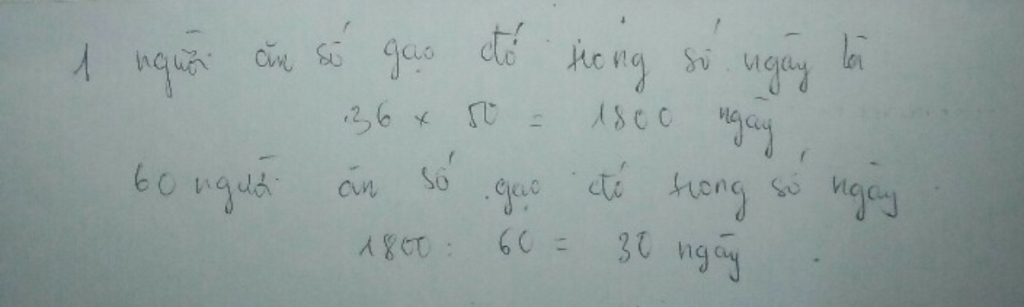 1 người ăn số gạo đó trong số ngày là
36 x 50 = 1800 ngày
60 người ăn số gạo đó trong số ngày
1800 : 60 = 30 ngày.